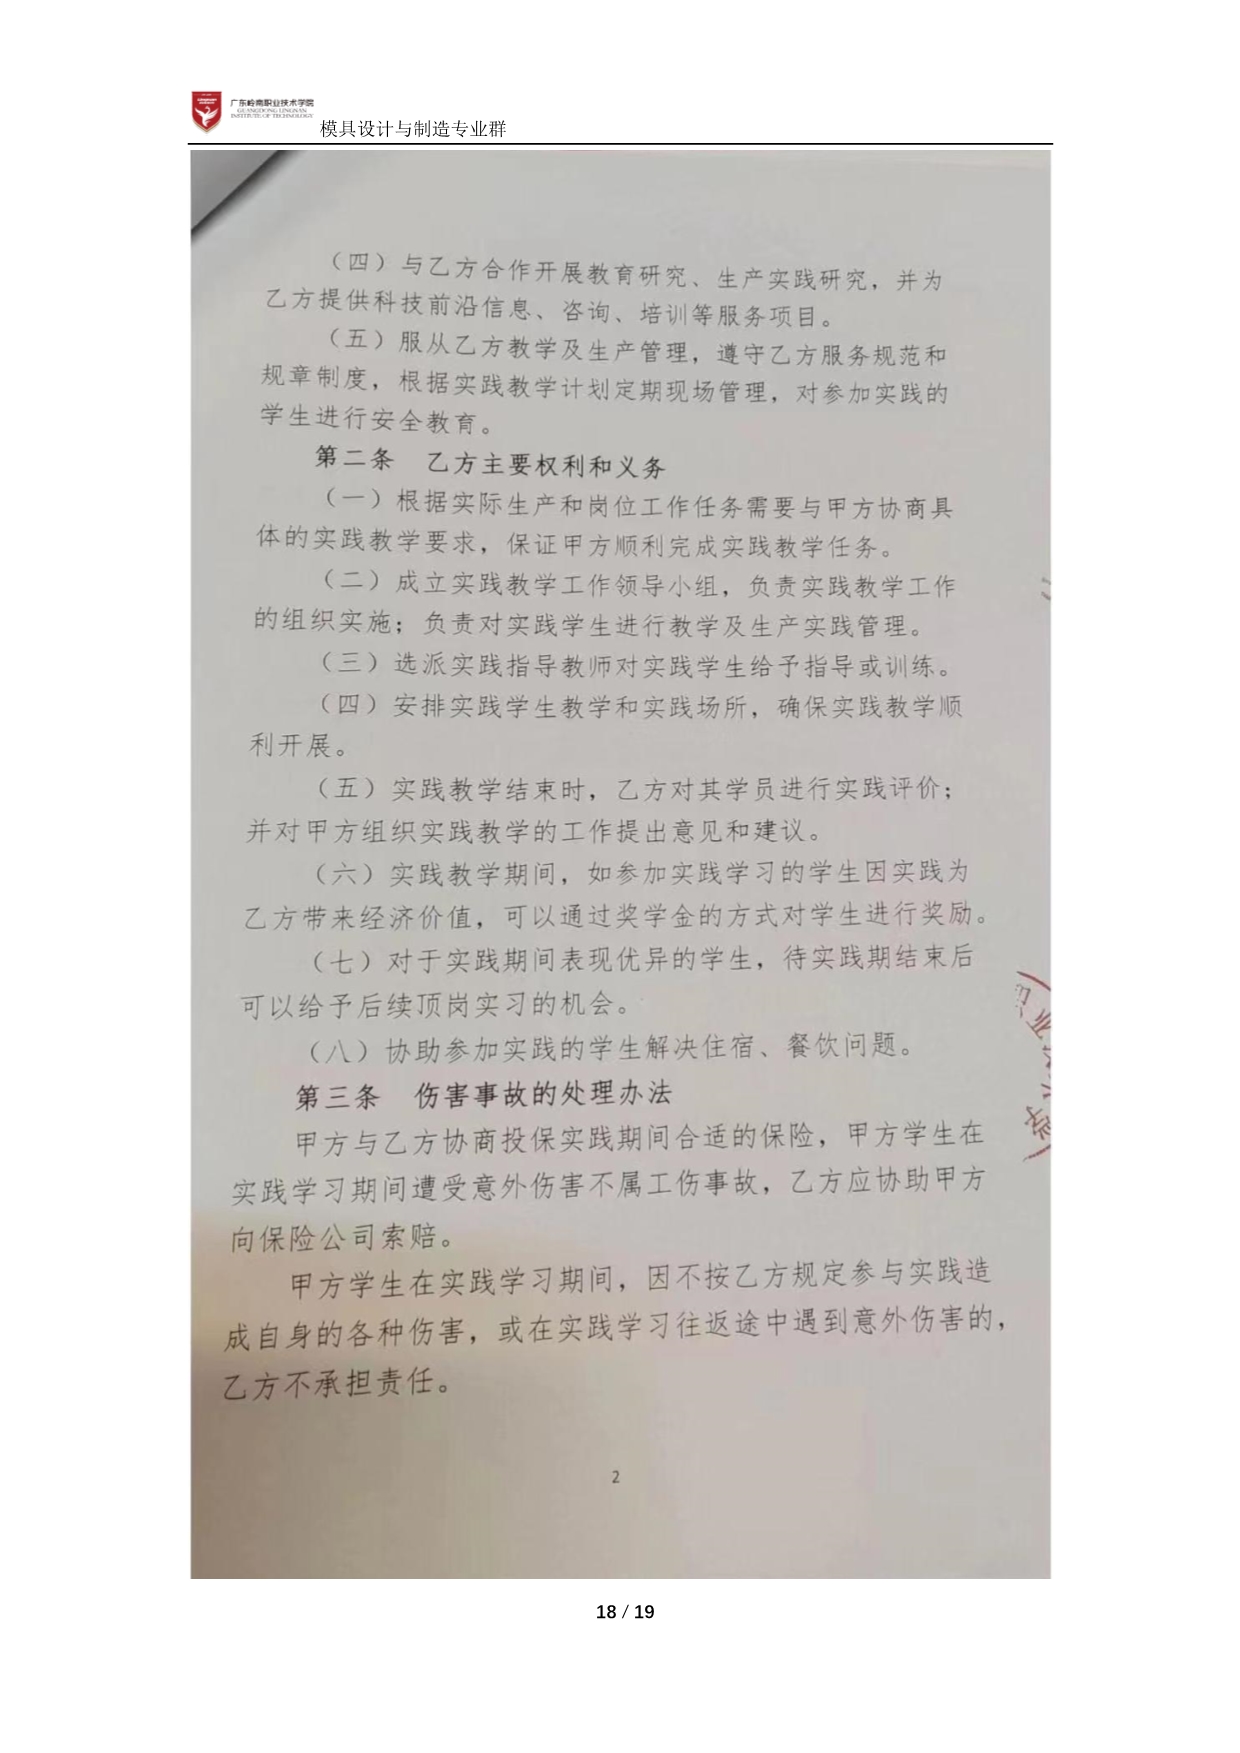 广东岭南职业技术学院
GUANGDONG LINGNAN
INSTITUTE OF TECHNOLOGY
模具设计与制造专业群
（四）与乙方合作开展教育研究、生产实践研究，并为
乙方提供科技前沿信息、咨询、培训等服务项目。
（五）服从乙方教学及生产管理，遵守乙方服务规范和
规章制度，根据实践教学计划定期现场管理，对参加实践的
学生进行安全教育。
第二条 乙方主要权利和义务
（一）根据实际生产和岗位工作任务需要与甲方协商具
体的实践教学要求，保证甲方顺利完成实践教学任务。
（二）成立实践教学工作领导小组，负责实践教学工作
的组织实施；负责对实践学生进行教学及生产实践管理。
（三）选派实践指导教师对实践学生给予指导或训练。
（四）安排实践学生教学和实践场所，确保实践教学顺
利开展。
（五）实践教学结束时，乙方对其学员进行实践评价；
并对甲方组织实践教学的工作提出意见和建议。
（六）实践教学期间，如参加实践学习的学生因实践为
乙方带来经济价值，可以通过奖学金的方式对学生进行奖励。
（七）对于实践期间表现优异的学生，待实践期结束后
可以给予后续顶岗实习的机会。
（八）协助参加实践的学生解决住宿、餐饮问题。
第三条 伤害事故的处理办法
甲方与乙方协商投保实践期间合适的保险，甲方学生在
实践学习期间遭受意外伤害不属工伤事故，乙方应协助甲方
向保险公司索赔。
甲方学生在实践学习期间，因不按乙方规定参与实践造
成自身的各种伤害，或在实践学习往返途中遇到意外伤害的，
乙方不承担责任。
2
18 / 19